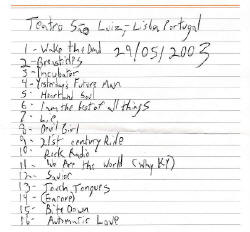 Teatro São Luiz, - Lisboa, Portugal
1 - Wake the Dead 29/05/2003
2 - Breastides
3 - Incubator
4 - Yesterdays Future Man
5 - Heartland Soul
6 - I am the best of all things
7 - Lie
8 - Devil Girl
9 - 21st century Ride
10 - Rock Radio
11 - We Are the World (why K?)
12 - Savior
13 - Touch Tongues
14 - (Encore)
15 - Bite Down
16 - Automatic Love